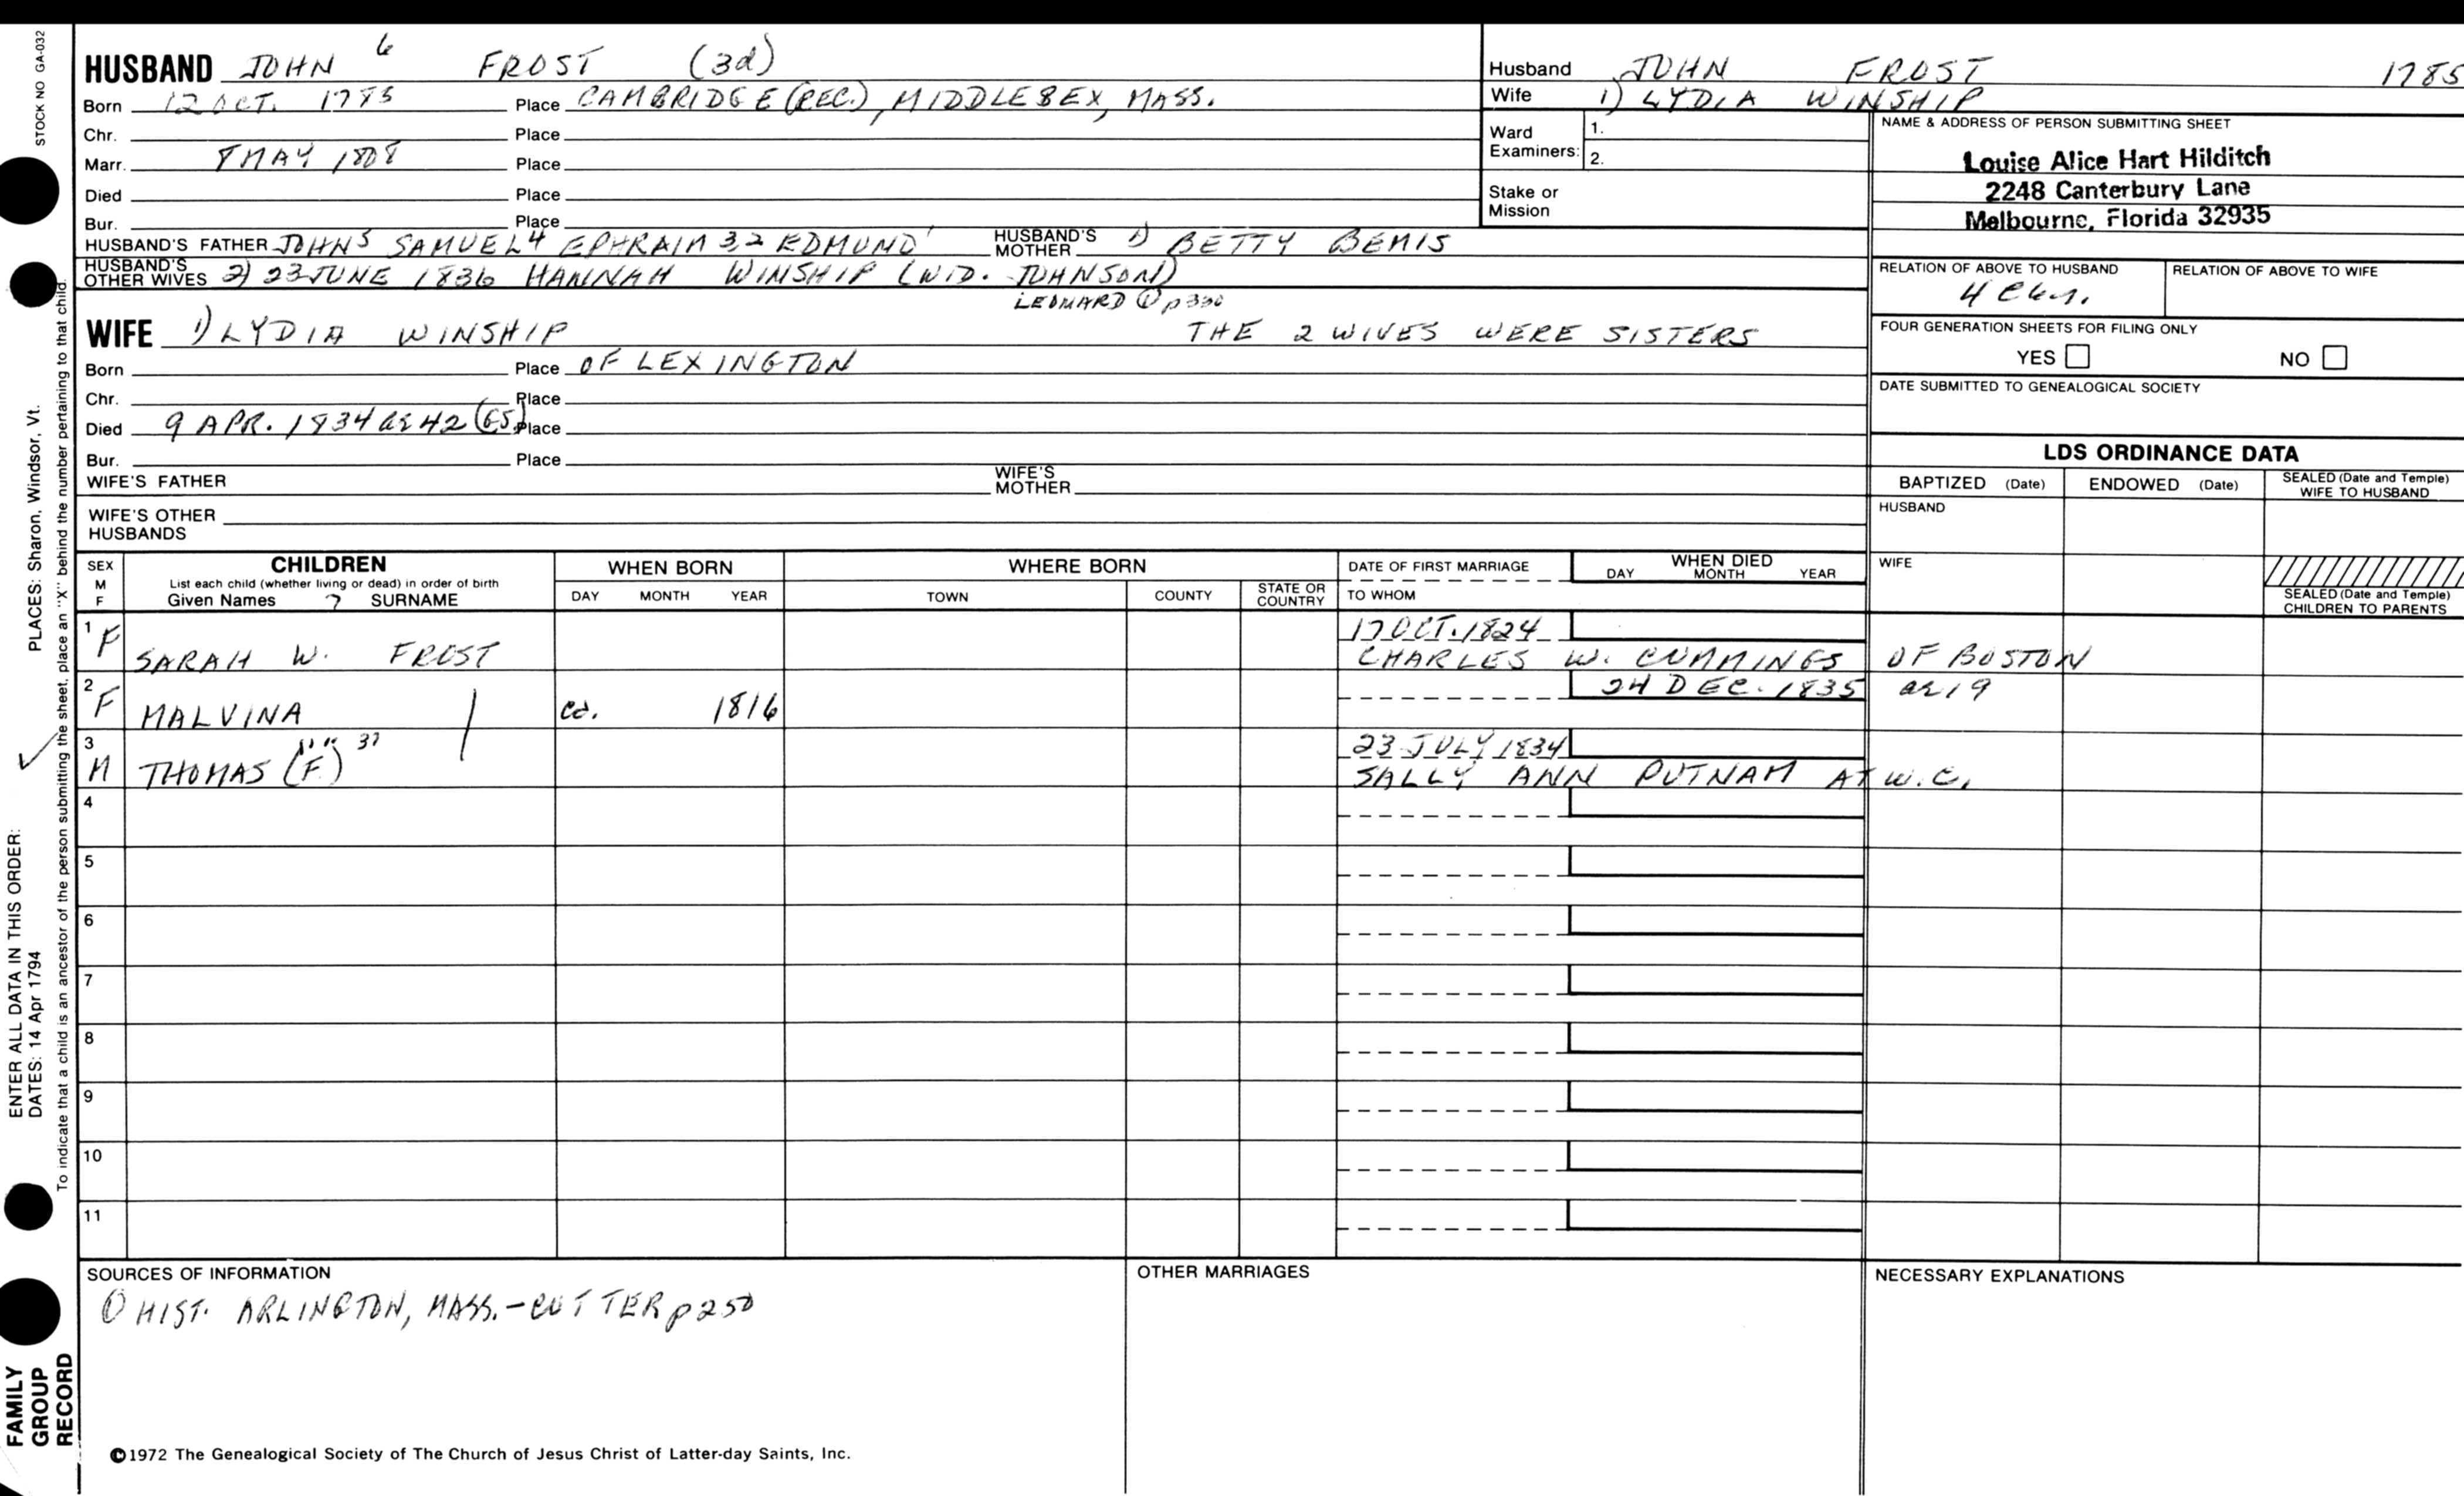 STOCK NO GA-032
HUSBAND JOHN 6 FROST (3d)
Born 12 OCT. 1785 Place CAMBRIDGE (REC.), MIDDLESEX, MASS.
Chr. Place
Marr. 8 MAY 1808 Place
Died Place
Bur. Place
HUSBAND'S FATHER JOHN5 SAMUEL4 EPHRAIM 3,2 EDMUND1 HUSBAND'S MOTHER 1) BETTY BEMIS
HUSBAND'S OTHER WIVES 2) 23 JUNE 1836 HANNAH WINSHIP (WID. JOHNSON)
LEONARD ① p350
WIFE 1) LYDIA WINSHIP THE 2 WIVES WERE SISTERS
Born Place OF LEXINGTON
Chr. Place
Died 9 APR. 1834 ae 42 (GS) Place
Bur. Place
WIFE'S FATHER WIFE'S MOTHER
WIFE'S OTHER HUSBANDS
Husband JOHN FROST 1785
Wife 1) LYDIA WINSHIP
Ward Examiners: 1.
2.
Stake or Mission
NAME & ADDRESS OF PERSON SUBMITTING SHEET
Louise Alice Hart Hilditch
2248 Canterbury Lane
Melbourne, Florida 32935
RELATION OF ABOVE TO HUSBAND RELATION OF ABOVE TO WIFE
4
FOUR GENERATION SHEETS FOR FILING ONLY
YES NO
DATE SUBMITTED TO GENEALOGICAL SOCIETY
LDS ORDINANCE DATA
BAPTIZED (Date) ENDOWED (Date) SEALED (Date and Temple) WIFE TO HUSBAND
HUSBAND
WIFE
SEALED (Date and Temple) CHILDREN TO PARENTS
SEX M F CHILDREN WHEN BORN WHERE BORN DATE OF FIRST MARRIAGE WHEN DIED
List each child (whether living or dead) in order of birth
DAY MONTH YEAR
Given Names 7 SURNAME DAY MONTH YEAR TOWN COUNTY STATE OR COUNTRY TO WHOM
1 F SARAH W. FROST 17 OCT. 1824
CHARLES W. CUMMINGS OF BOSTON
2 F MALVINA ca. 1816 24 DEC. 1835 ae 19
3 M THOMAS (F.) 37 23 JULY 1834
SALLY ANN PUTNAM AT W.C.
4
5
6
7
8
9
10
11
SOURCES OF INFORMATION OTHER MARRIAGES NECESSARY EXPLANATIONS
① HIST. ARLINGTON, MASS. - CUTTER p 250
©1972 The Genealogical Society of The Church of Jesus Christ of Latter-day Saints, Inc.
ENTER ALL DATA IN THIS ORDER:
DATES: 14 Apr 1794 PLACES: Sharon, Windsor, Vt.
To indicate that a child is an ancestor of the person submitting the sheet, place an "X" behind the number pertaining to that child.
FAMILY
GROUP
RECORD